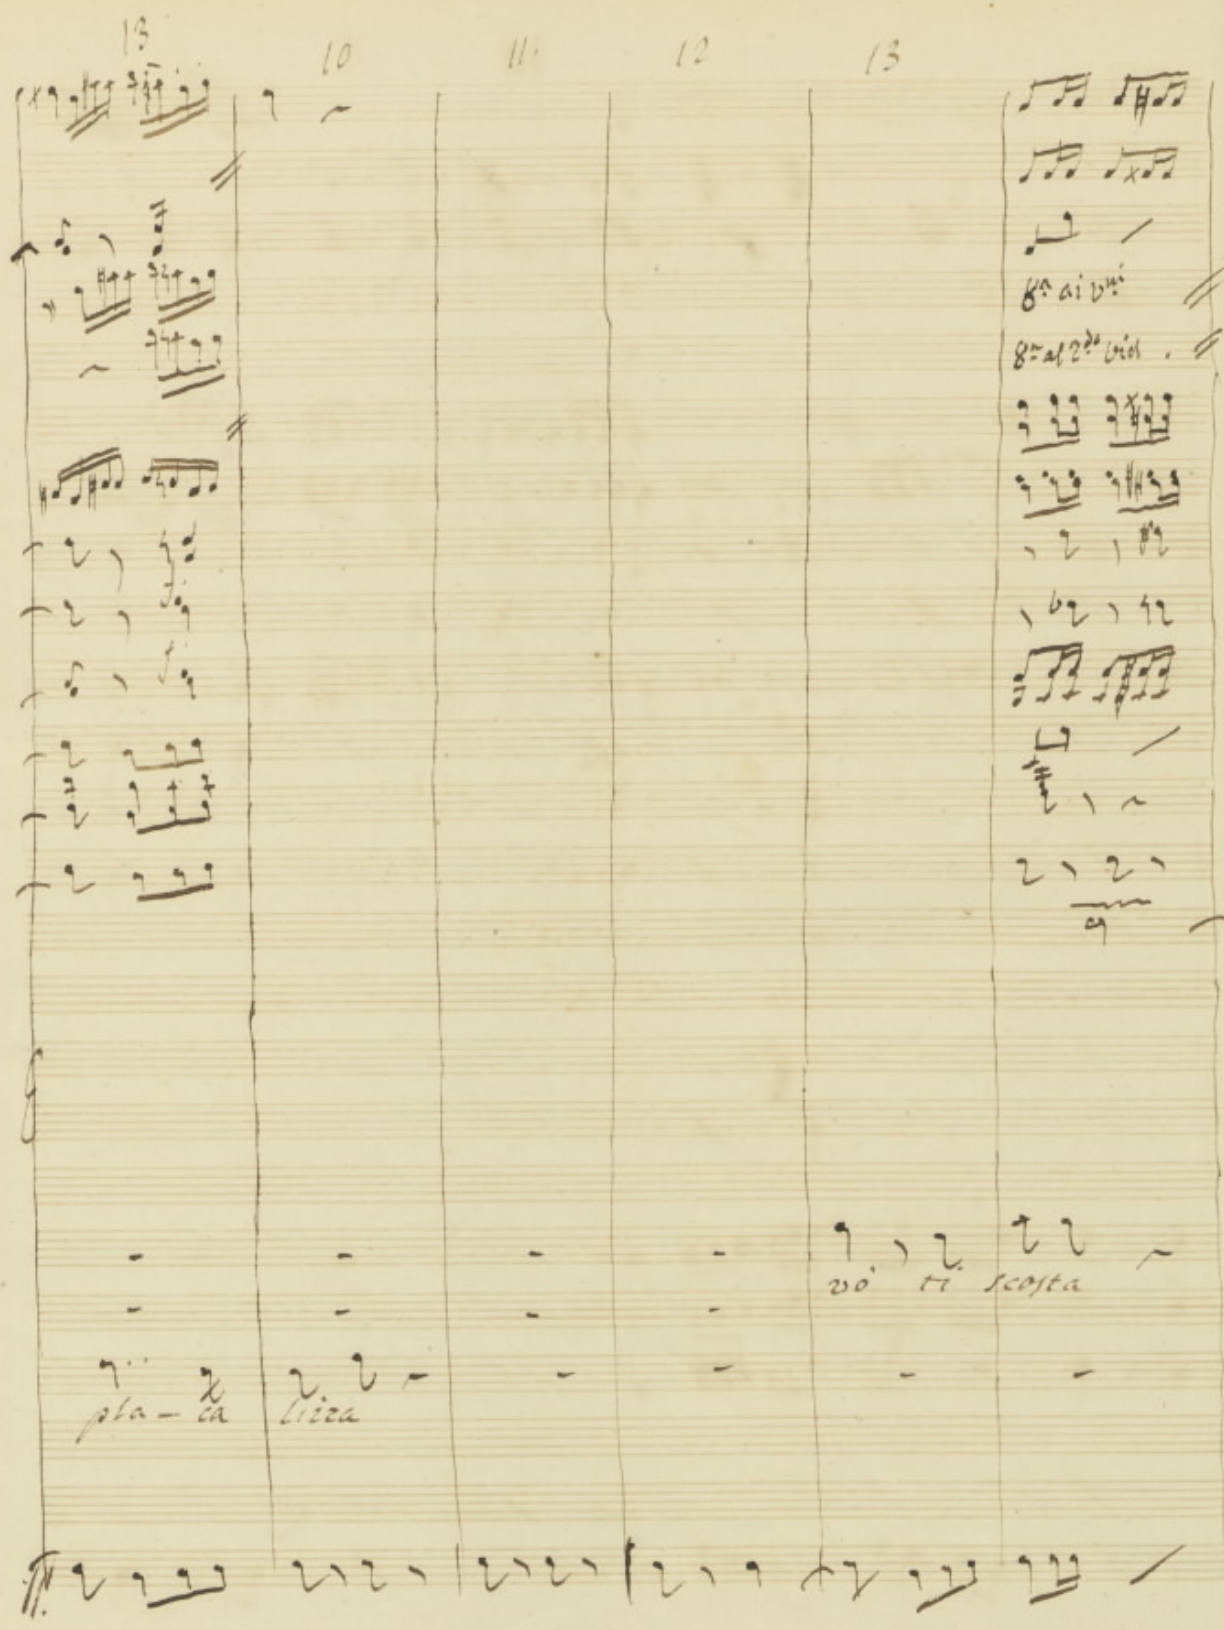 13 10 11 12 13
8ª ai vni
8ª al 2do viol.
vò ti scosta
pla - ca lizza